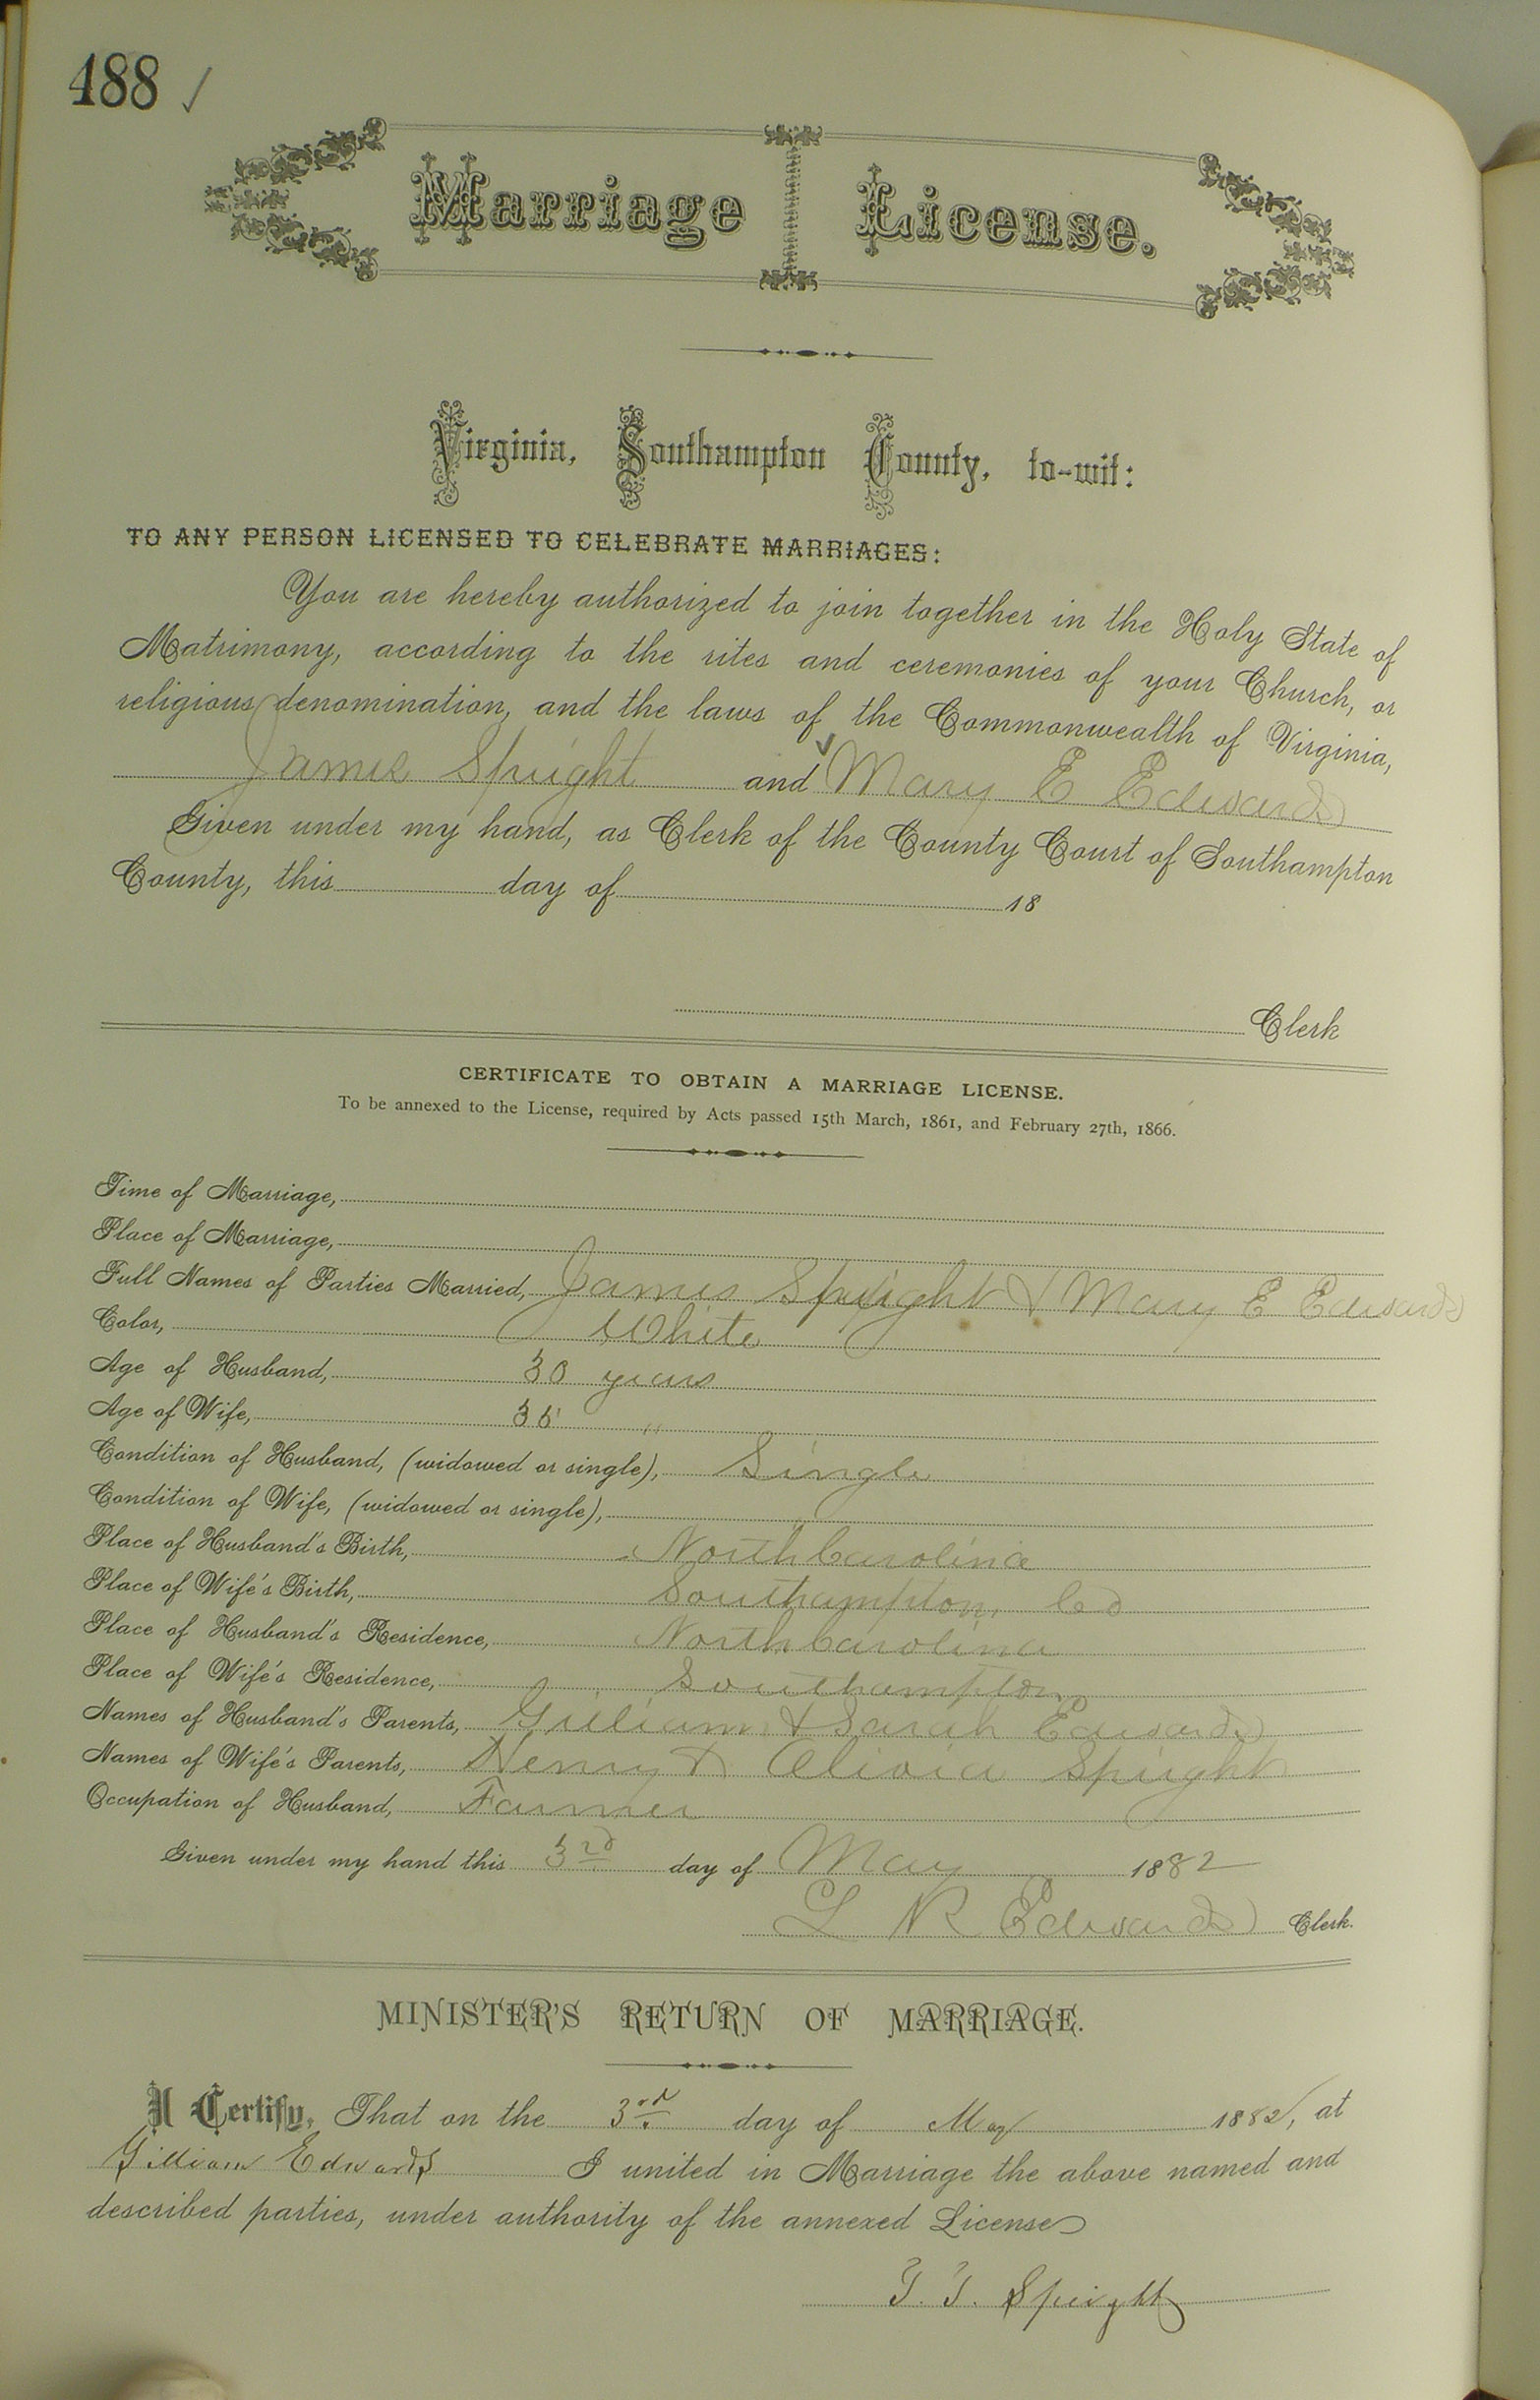 488 ✓
Marriage License.
Virginia, Southampton County, to-wit:
TO ANY PERSON LICENSED TO CELEBRATE MARRIAGES:
You are hereby authorized to join together in the Holy State of
Matrimony, according to the rites and ceremonies of your Church, or
religious denomination, and the laws of the Commonwealth of Virginia,
James Spright and Mary E Edwards
Given under my hand, as Clerk of the County Court of Southampton
County, this day of 18
Clerk
CERTIFICATE TO OBTAIN A MARRIAGE LICENSE.
To be annexed to the License, required by Acts passed 15th March, 1861, and February 27th, 1866.
Time of Marriage,
Place of Marriage,
Full Names of Parties Married, James Spright & Mary E Edwards
Color, White
Age of Husband, 30 years
Age of Wife, 35 "
Condition of Husband, (widowed or single), Single
Condition of Wife, (widowed or single),
Place of Husband's Birth, North Carolina
Place of Wife's Birth, Southampton, Co
Place of Husband's Residence, North Carolina
Place of Wife's Residence, Southampton
Names of Husband's Parents, Gilliam & Sarah Edwards
Names of Wife's Parents, Henry & Olivia Spright
Occupation of Husband, Farmer
Given under my hand this 3rd day of May 1882
L R Edwards Clerk.
MINISTER'S RETURN OF MARRIAGE.
I Certify, That on the 3rd day of May 1882, at
Gilliam Edwards I united in Marriage the above named and
described parties, under authority of the annexed License
T. T. Speight